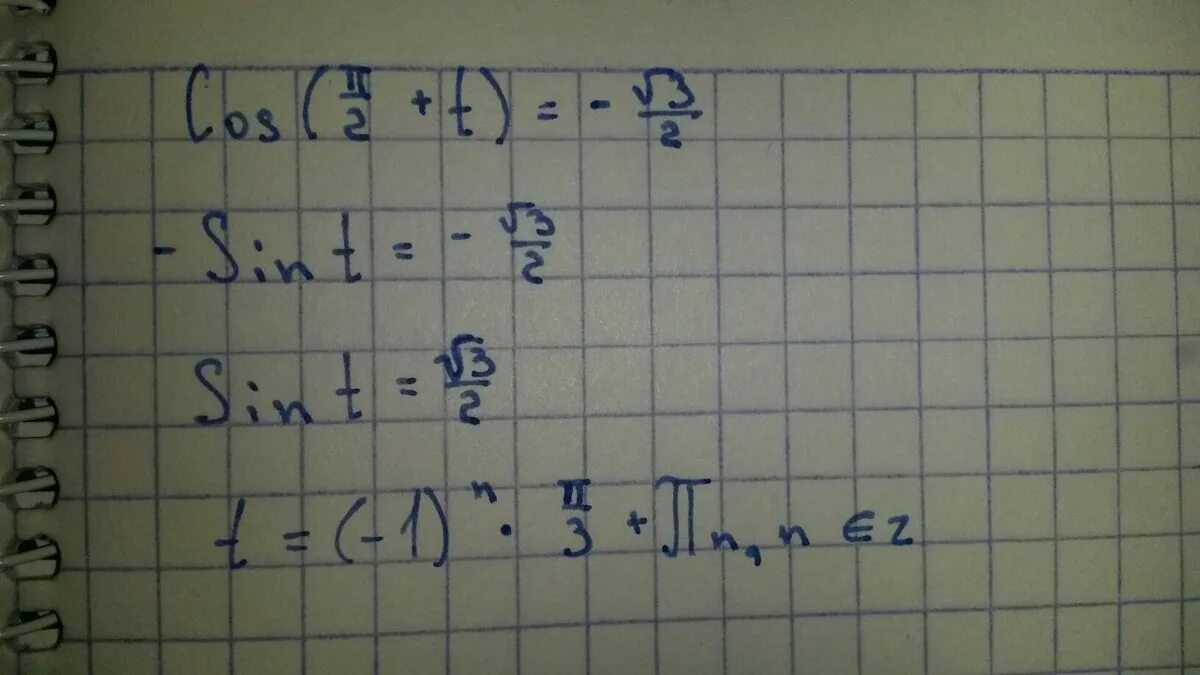 Cos(π/2 + t) = - √3/2
- Sin t = - √3/2
Sin t = √3/2
t = (-1)^n · π/3 + πn, n ∈ z